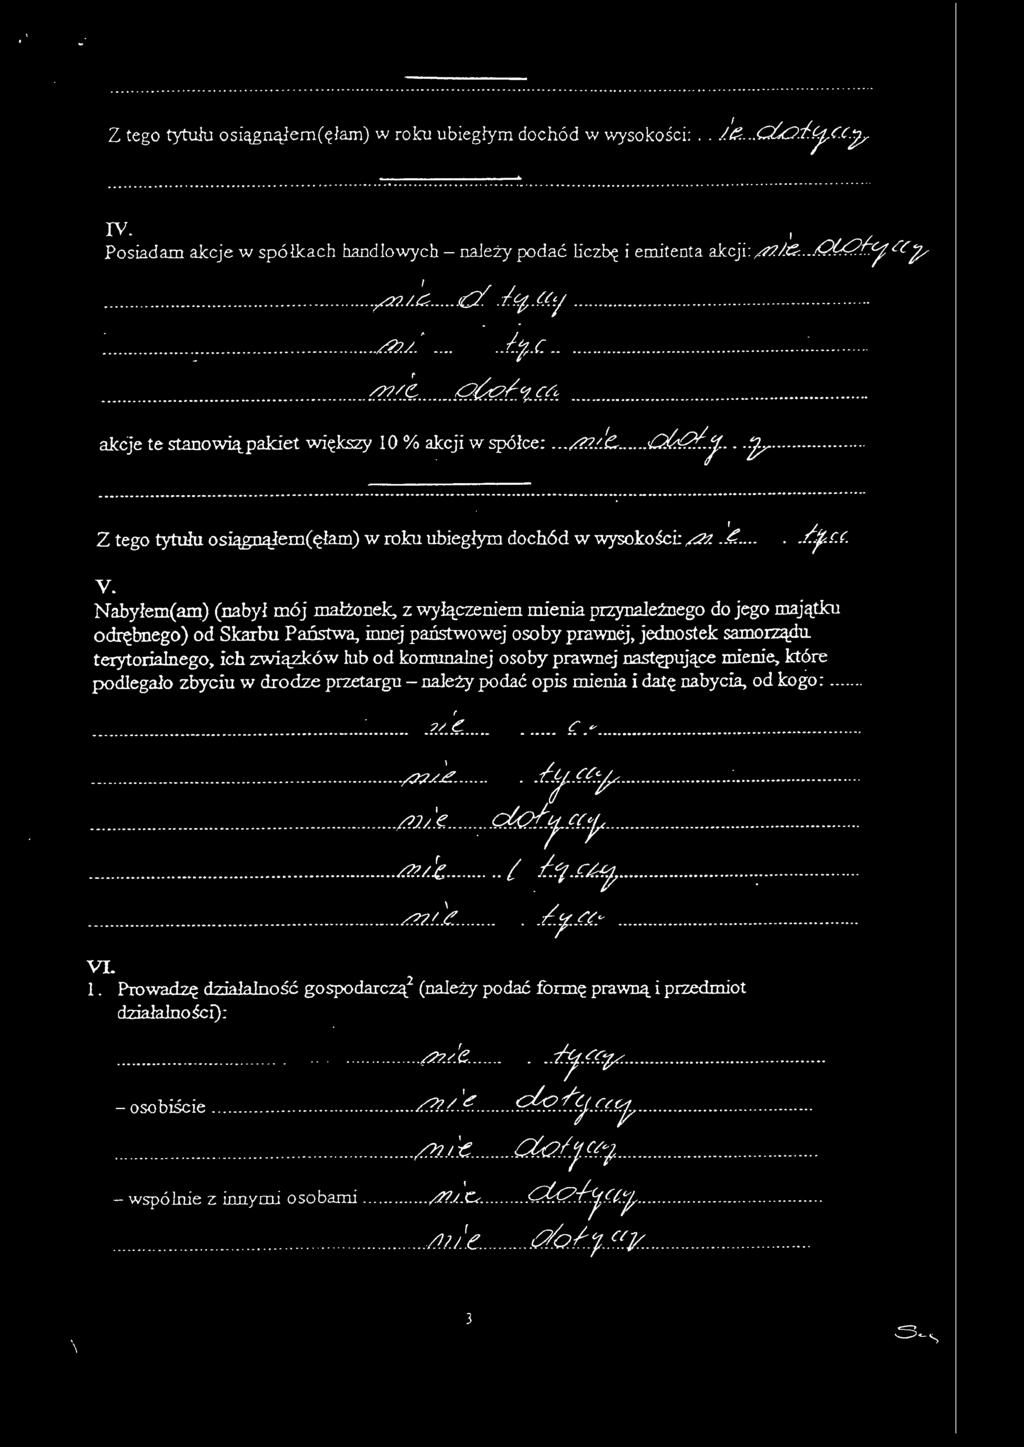 Z tego tytułu osiągnąłem(ęłam) w roku ubiegłym dochód w wysokości: . . ie dotyczy
IV.
Posiadam akcje w spółkach handlowych – należy podać liczbę i emitenta akcji: nie dotyczy
nie d tyczy
ni tyc
nie dotycz
akcje te stanowią pakiet większy 10 % akcji w spółce: nie doty y
Z tego tytułu osiągnąłem(ęłam) w roku ubiegłym dochód w wysokości: n e tycz
V.
Nabyłem(am) (nabył mój małżonek, z wyłączeniem mienia przynależnego do jego majątku
odrębnego) od Skarbu Państwa, innej państwowej osoby prawnej, jednostek samorządu
terytorialnego, ich związków lub od komunalnej osoby prawnej następujące mienie, które
podlegało zbyciu w drodze przetargu – należy podać opis mienia i datę nabycia, od kogo: .......
nie
nie tyczy
nie dotyczy
nie tyczy
nie tycz
VI.
1. Prowadzę działalność gospodarczą² (należy podać formę prawną i przedmiot
działalności):
nie tyczy
– osobiście nie dotyczy
nie dotyczy
– wspólnie z innymi osobami nie dotyczy
nie dotyczy
3